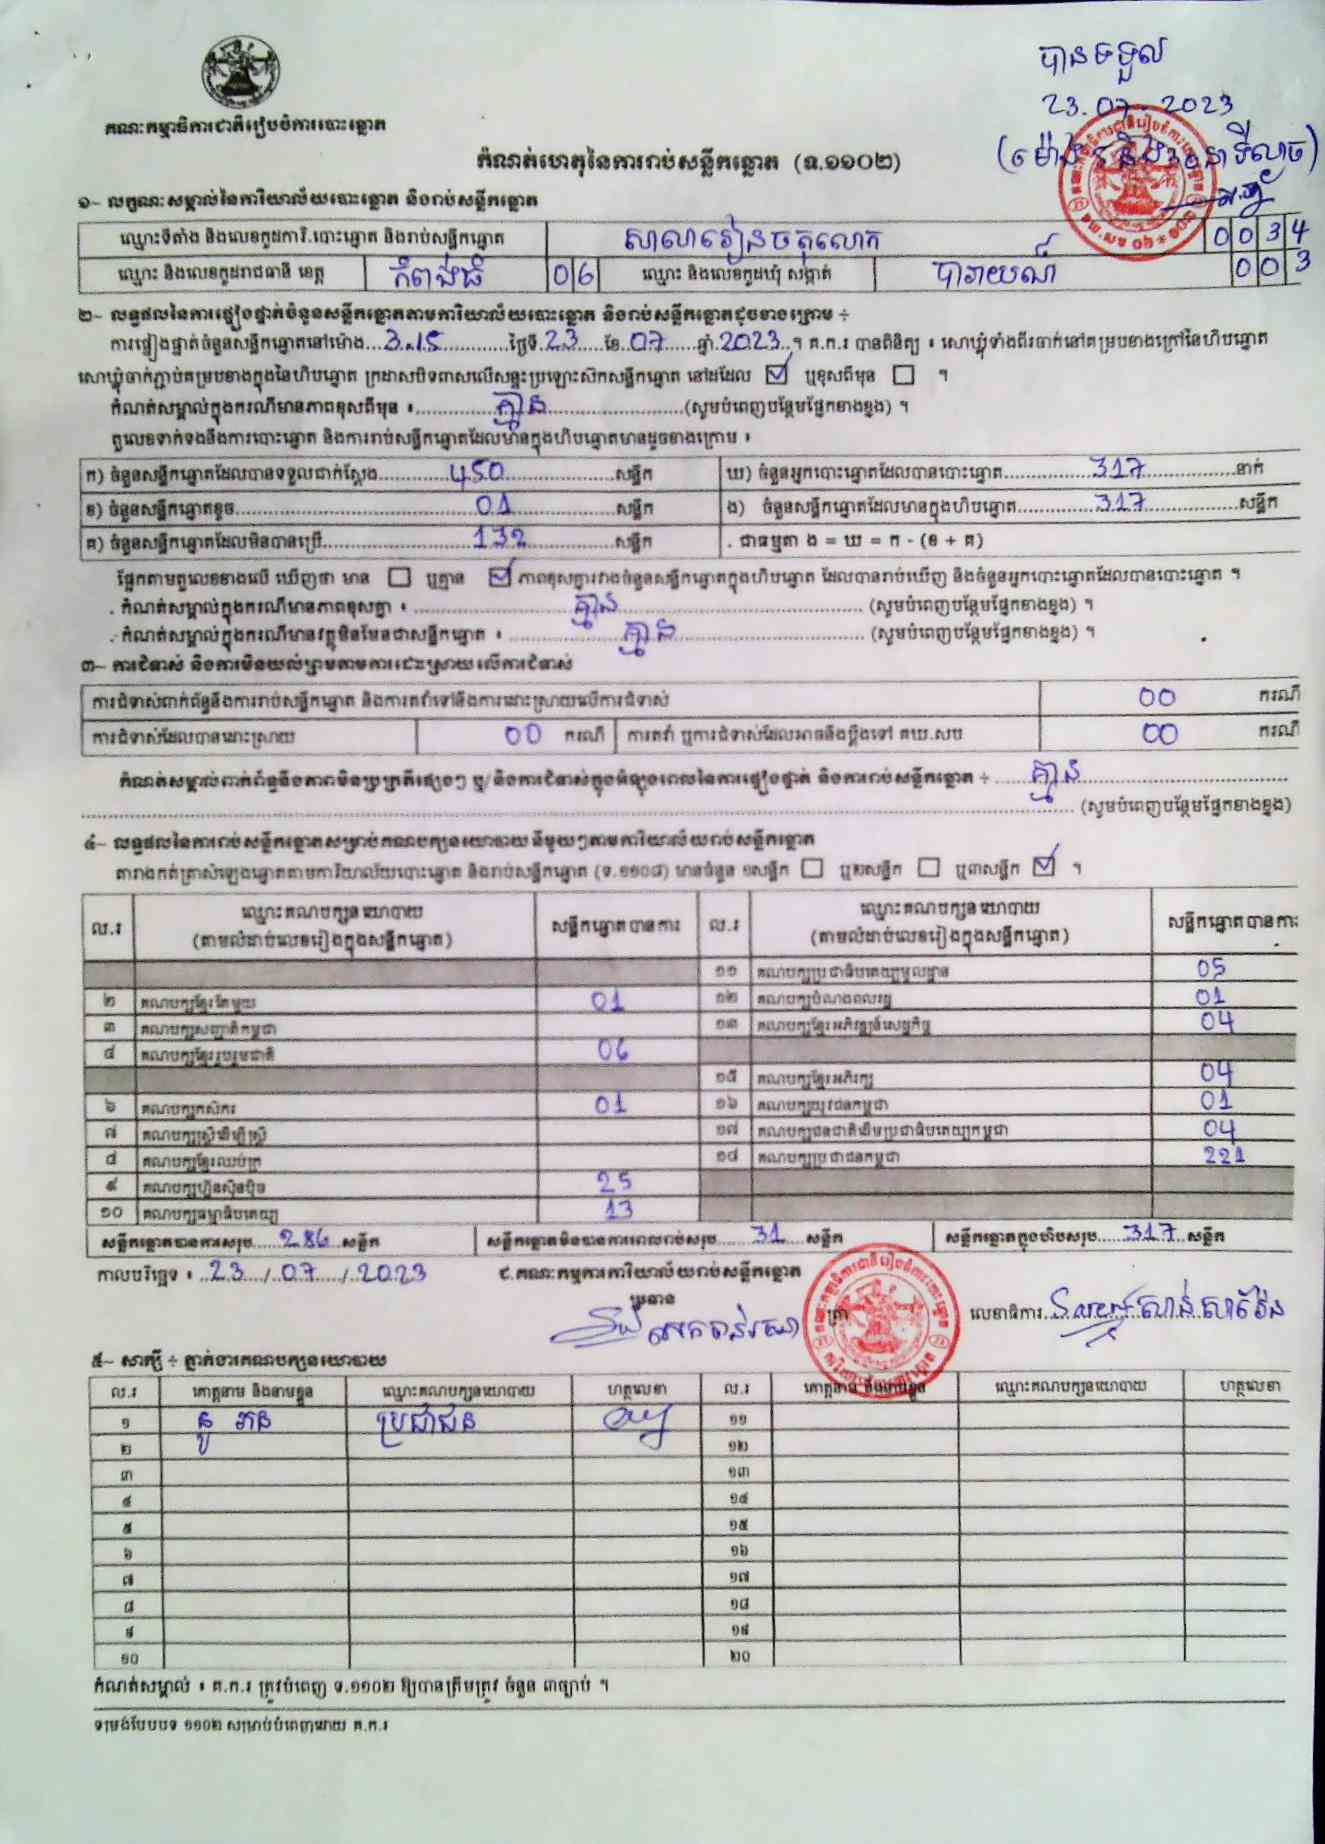 បានទទួល
23.07.2023
គណៈកម្មាធិការជាតិរៀបចំការបោះឆ្នោត
កំណត់ហេតុនៃការរាប់សន្លឹកឆ្នោត (ទ.១១០២)
១- លក្ខណៈសម្គាល់នៃការិយាល័យបោះឆ្នោត និងរាប់សន្លឹកឆ្នោត
ឈ្មោះទីតាំង និងលេខកូដការិ.បោះឆ្នោត និងរាប់សន្លឹកឆ្នោត សាលារៀនចតុលោក 0034
ឈ្មោះ និងលេខកូដរាជធានី ខេត្ត កំពង់ធំ 06 ឈ្មោះ និងលេខកូដឃុំ សង្កាត់ បារាយណ៍ 003
២- លទ្ធផលនៃការផ្ទៀងផ្ទាត់ចំនួនសន្លឹកឆ្នោតតាមការិយាល័យបោះឆ្នោត និងរាប់សន្លឹកឆ្នោតដូចខាងក្រោម ÷
ការផ្ទៀងផ្ទាត់ចំនួនសន្លឹកឆ្នោតនៅម៉ោង...3.15...ថ្ងៃទី.23...ខែ..07...ឆ្នាំ.2023..។ គ.ក.រ បានពិនិត្យ ៖ សោឃ្លុំទាំងពីរចាក់នៅគម្របខាងក្រៅនៃហិបឆ្នោត
សោឃ្លុំចាក់ភ្ជាប់គម្របខាងក្នុងនៃហិបឆ្នោត ក្រដាសបិទពាសលើសន្ទះប្រឡោះសិកសន្លឹកឆ្នោត នៅដដែល ☑ ឬខុសពីមុន ☐ ។
កំណត់សម្គាល់ក្នុងករណីមានភាពខុសពីមុន ៖...គ្មាន...(សូមបំពេញបន្ថែមផ្នែកខាងខ្នង) ។
តួលេខទាក់ទងនឹងការបោះឆ្នោត និងការរាប់សន្លឹកឆ្នោតដែលមានក្នុងហិបឆ្នោតមានដូចខាងក្រោម ៖
ក) ចំនួនសន្លឹកឆ្នោតដែលបានទទួលជាក់ស្តែង...450...សន្លឹក ឃ) ចំនួនអ្នកបោះឆ្នោតដែលបានបោះឆ្នោត...317...នាក់
ខ) ចំនួនសន្លឹកឆ្នោតខូច...01...សន្លឹក ង) ចំនួនសន្លឹកឆ្នោតដែលមានក្នុងហិបឆ្នោត...317...សន្លឹក
គ) ចំនួនសន្លឹកឆ្នោតដែលមិនបានប្រើ...132...សន្លឹក . ជាធម្មតា ង = ឃ = ក - (ខ + គ)
ផ្អែកតាមតួលេខខាងលើ ឃើញថា មាន ☐ ឬគ្មាន ☑ ភាពខុសគ្នារវាងចំនួនសន្លឹកឆ្នោតក្នុងហិបឆ្នោត ដែលបានរាប់ឃើញ និងចំនួនអ្នកបោះឆ្នោតដែលបានបោះឆ្នោត ។
. កំណត់សម្គាល់ក្នុងករណីមានភាពខុសគ្នា ៖ ...គ្មាន... (សូមបំពេញបន្ថែមផ្នែកខាងខ្នង) ។
. កំណត់សម្គាល់ក្នុងករណីមានវត្ថុមិនមែនជាសន្លឹកឆ្នោត ៖ ...គ្មាន... (សូមបំពេញបន្ថែមផ្នែកខាងខ្នង) ។
៣- ការជំទាស់ និងការមិនយល់ព្រមតាមការដោះស្រាយ លើការជំទាស់
ការជំទាស់ពាក់ព័ន្ធនឹងការរាប់សន្លឹកឆ្នោត និងការតវ៉ាទៅនឹងការដោះស្រាយលើការជំទាស់ 00 ករណី
ការជំទាស់ដែលបានដោះស្រាយ 00 ករណី ការតវ៉ា ឬការជំទាស់ដែលអាចនឹងប្តឹងទៅ គឃ.សប 00 ករណី
កំណត់សម្គាល់ពាក់ព័ន្ធនឹងភាពមិនប្រក្រតីផ្សេងៗ ឬ/និងការជំទាស់ក្នុងអំឡុងពេលនៃការផ្ទៀងផ្ទាត់ និងការរាប់សន្លឹកឆ្នោត ÷ ...គ្មាន...
(សូមបំពេញបន្ថែមផ្នែកខាងខ្នង)
៤- លទ្ធផលនៃការរាប់សន្លឹកឆ្នោតសម្រាប់គណបក្សនយោបាយ នីមួយៗតាមការិយាល័យរាប់សន្លឹកឆ្នោត
តារាងកត់ត្រាសំឡេងឆ្នោតតាមការិយាល័យបោះឆ្នោត និងរាប់សន្លឹកឆ្នោត (ទ.១១០៨) មានចំនួន ១សន្លឹក ☐ ឬ២សន្លឹក ☐ ឬ៣សន្លឹក ☑ ។
ល.រ ឈ្មោះគណបក្សនយោបាយ (តាមលំដាប់លេខរៀងក្នុងសន្លឹកឆ្នោត) សន្លឹកឆ្នោតបានការ ល.រ ឈ្មោះគណបក្សនយោបាយ (តាមលំដាប់លេខរៀងក្នុងសន្លឹកឆ្នោត) សន្លឹកឆ្នោតបានការ
១១ គណបក្សប្រជាធិបតេយ្យមូលដ្ឋាន 05
២ គណបក្សខ្មែរតែមួយ 01 ១២ គណបក្សបំណងពលរដ្ឋ 01
៣ គណបក្សសញ្ជាតិកម្ពុជា ១៣ គណបក្សខ្មែរអភិវឌ្ឍន៍សេដ្ឋកិច្ច 04
៤ គណបក្សខ្មែររួបរួមជាតិ 06
១៥ គណបក្សខ្មែរអភិរក្ស 04
៦ គណបក្សកសិករ 01 ១៦ គណបក្សយុវជនកម្ពុជា 01
៧ គណបក្សស្ត្រីដើម្បីស្ត្រី ១៧ គណបក្សជនជាតិដើមប្រជាធិបតេយ្យកម្ពុជា 04
៨ គណបក្សខ្មែរឈប់ក្រ ១៨ គណបក្សប្រជាជនកម្ពុជា 221
៩ គណបក្សហ្វ៊ុនស៊ិនប៉ិច 25
១០ គណបក្សធម្មាធិបតេយ្យ 13
សន្លឹកឆ្នោតបានការសរុប...286..សន្លឹក សន្លឹកឆ្នោតមិនបានការពេលរាប់សរុប...31...សន្លឹក សន្លឹកឆ្នោតក្នុងហិបសរុប...317..សន្លឹក
កាលបរិច្ឆេទ ៖ ..23../..07../..2023 ៩.គណៈកម្មការការិយាល័យរាប់សន្លឹកឆ្នោត
ប្រធាន ត្រា លេខាធិការ
៥- សាក្សី ÷ ភ្នាក់ងារគណបក្សនយោបាយ
ល.រ គោត្តនាម និងនាមខ្លួន ឈ្មោះគណបក្សនយោបាយ ហត្ថលេខា ល.រ គោត្តនាម និងនាមខ្លួន ឈ្មោះគណបក្សនយោបាយ ហត្ថលេខា
១ ប្រជាជន ១១
២ ១២
៣ ១៣
៤ ១៤
៥ ១៥
៦ ១៦
៧ ១៧
៨ ១៨
៩ ១៩
១០ ២០
កំណត់សម្គាល់ ៖ គ.ក.រ ត្រូវបំពេញ ទ.១១០២ ឱ្យបានត្រឹមត្រូវ ចំនួន ៣ច្បាប់ ។
ទម្រង់បែបបទ ១១០២ សម្រាប់បំពេញដោយ គ.ក.រ